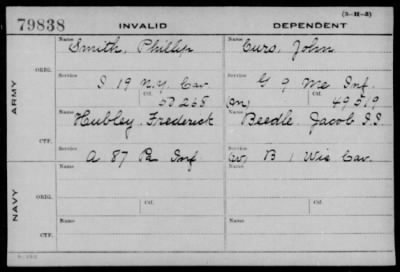 (3-H-3)
79838 INVALID DEPENDENT
Name Name
Smith, Phillip Curo, John
ORIG.
Service Service
I 19 N.Y. Cav G 9 Me Inf.
Ctf. Ctf.
53268 (m) 49519
ARMY
Name Name
Hubley, Frederick Beedle, Jacob S.S.
CTF.
Service Service
A 87 Pa Inf (W) B 1 Wis Cav.
Name Ctf. Name Ctf.
ORIG.
NAVY
Name Name
CTF.